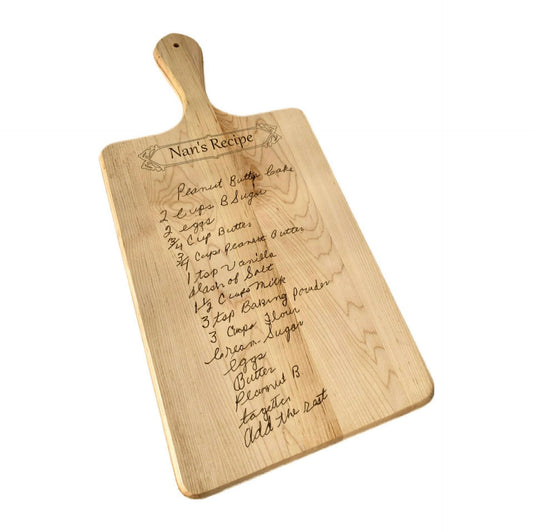 Nan's Recipe
Peanut Butter Cake
2 Cups B Sugar
2 eggs
3/4 Cup Butter
3/4 Cups Peanut Butter
1 tsp Vanilla
dash of Salt
1 1/2 Cups Milk
3 tsp Baking Powder
3 Cups Flour
Cream Sugar
eggs
Butter
Peanut B
together
add the rest